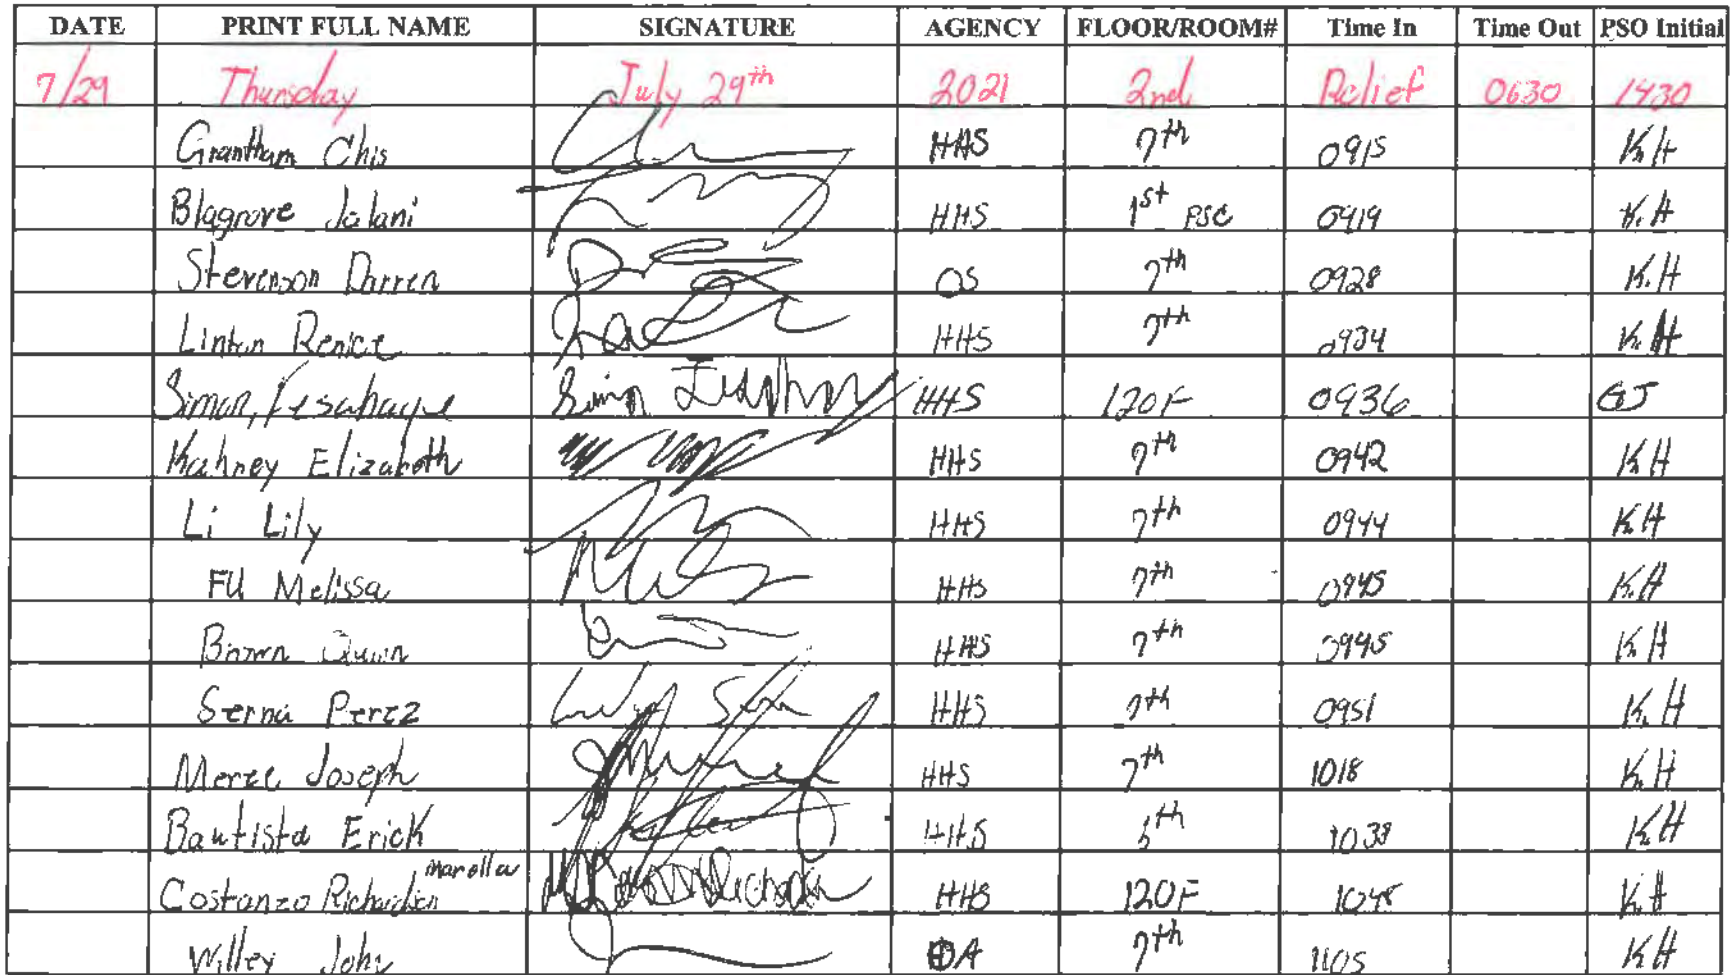 DATE PRINT FULL NAME SIGNATURE AGENCY FLOOR/ROOM# Time In Time Out PSO Initial
7/29 Thursday July 29th 2021 2nd Relief 0630 1430
Grantham Chis HHS 7th 0915 K.H
Blagrove Jalani HHS 1st PSC 0919 K.H
Stevenson Darren OS 7th 0928 K.H
Linton Renice HHS 7th 0934 K.H
Simon, Fesahaye HHS 120F 0936 GJ
Kahney Elizabeth HHS 7th 0942 K.H
Li Lily HHS 7th 0944 K.H
FU Melissa HHS 7th 0945 K.H
Brown Quinn HHS 7th 0945 K.H
Serna Perez HHS 7th 0951 K.H
Joseph HHS 7th 1018 K.H
Bautista Erick HHS 1038 K.H
Costanzo Richardson HHS 120F K.H
Willey John 7th 1105 K.H